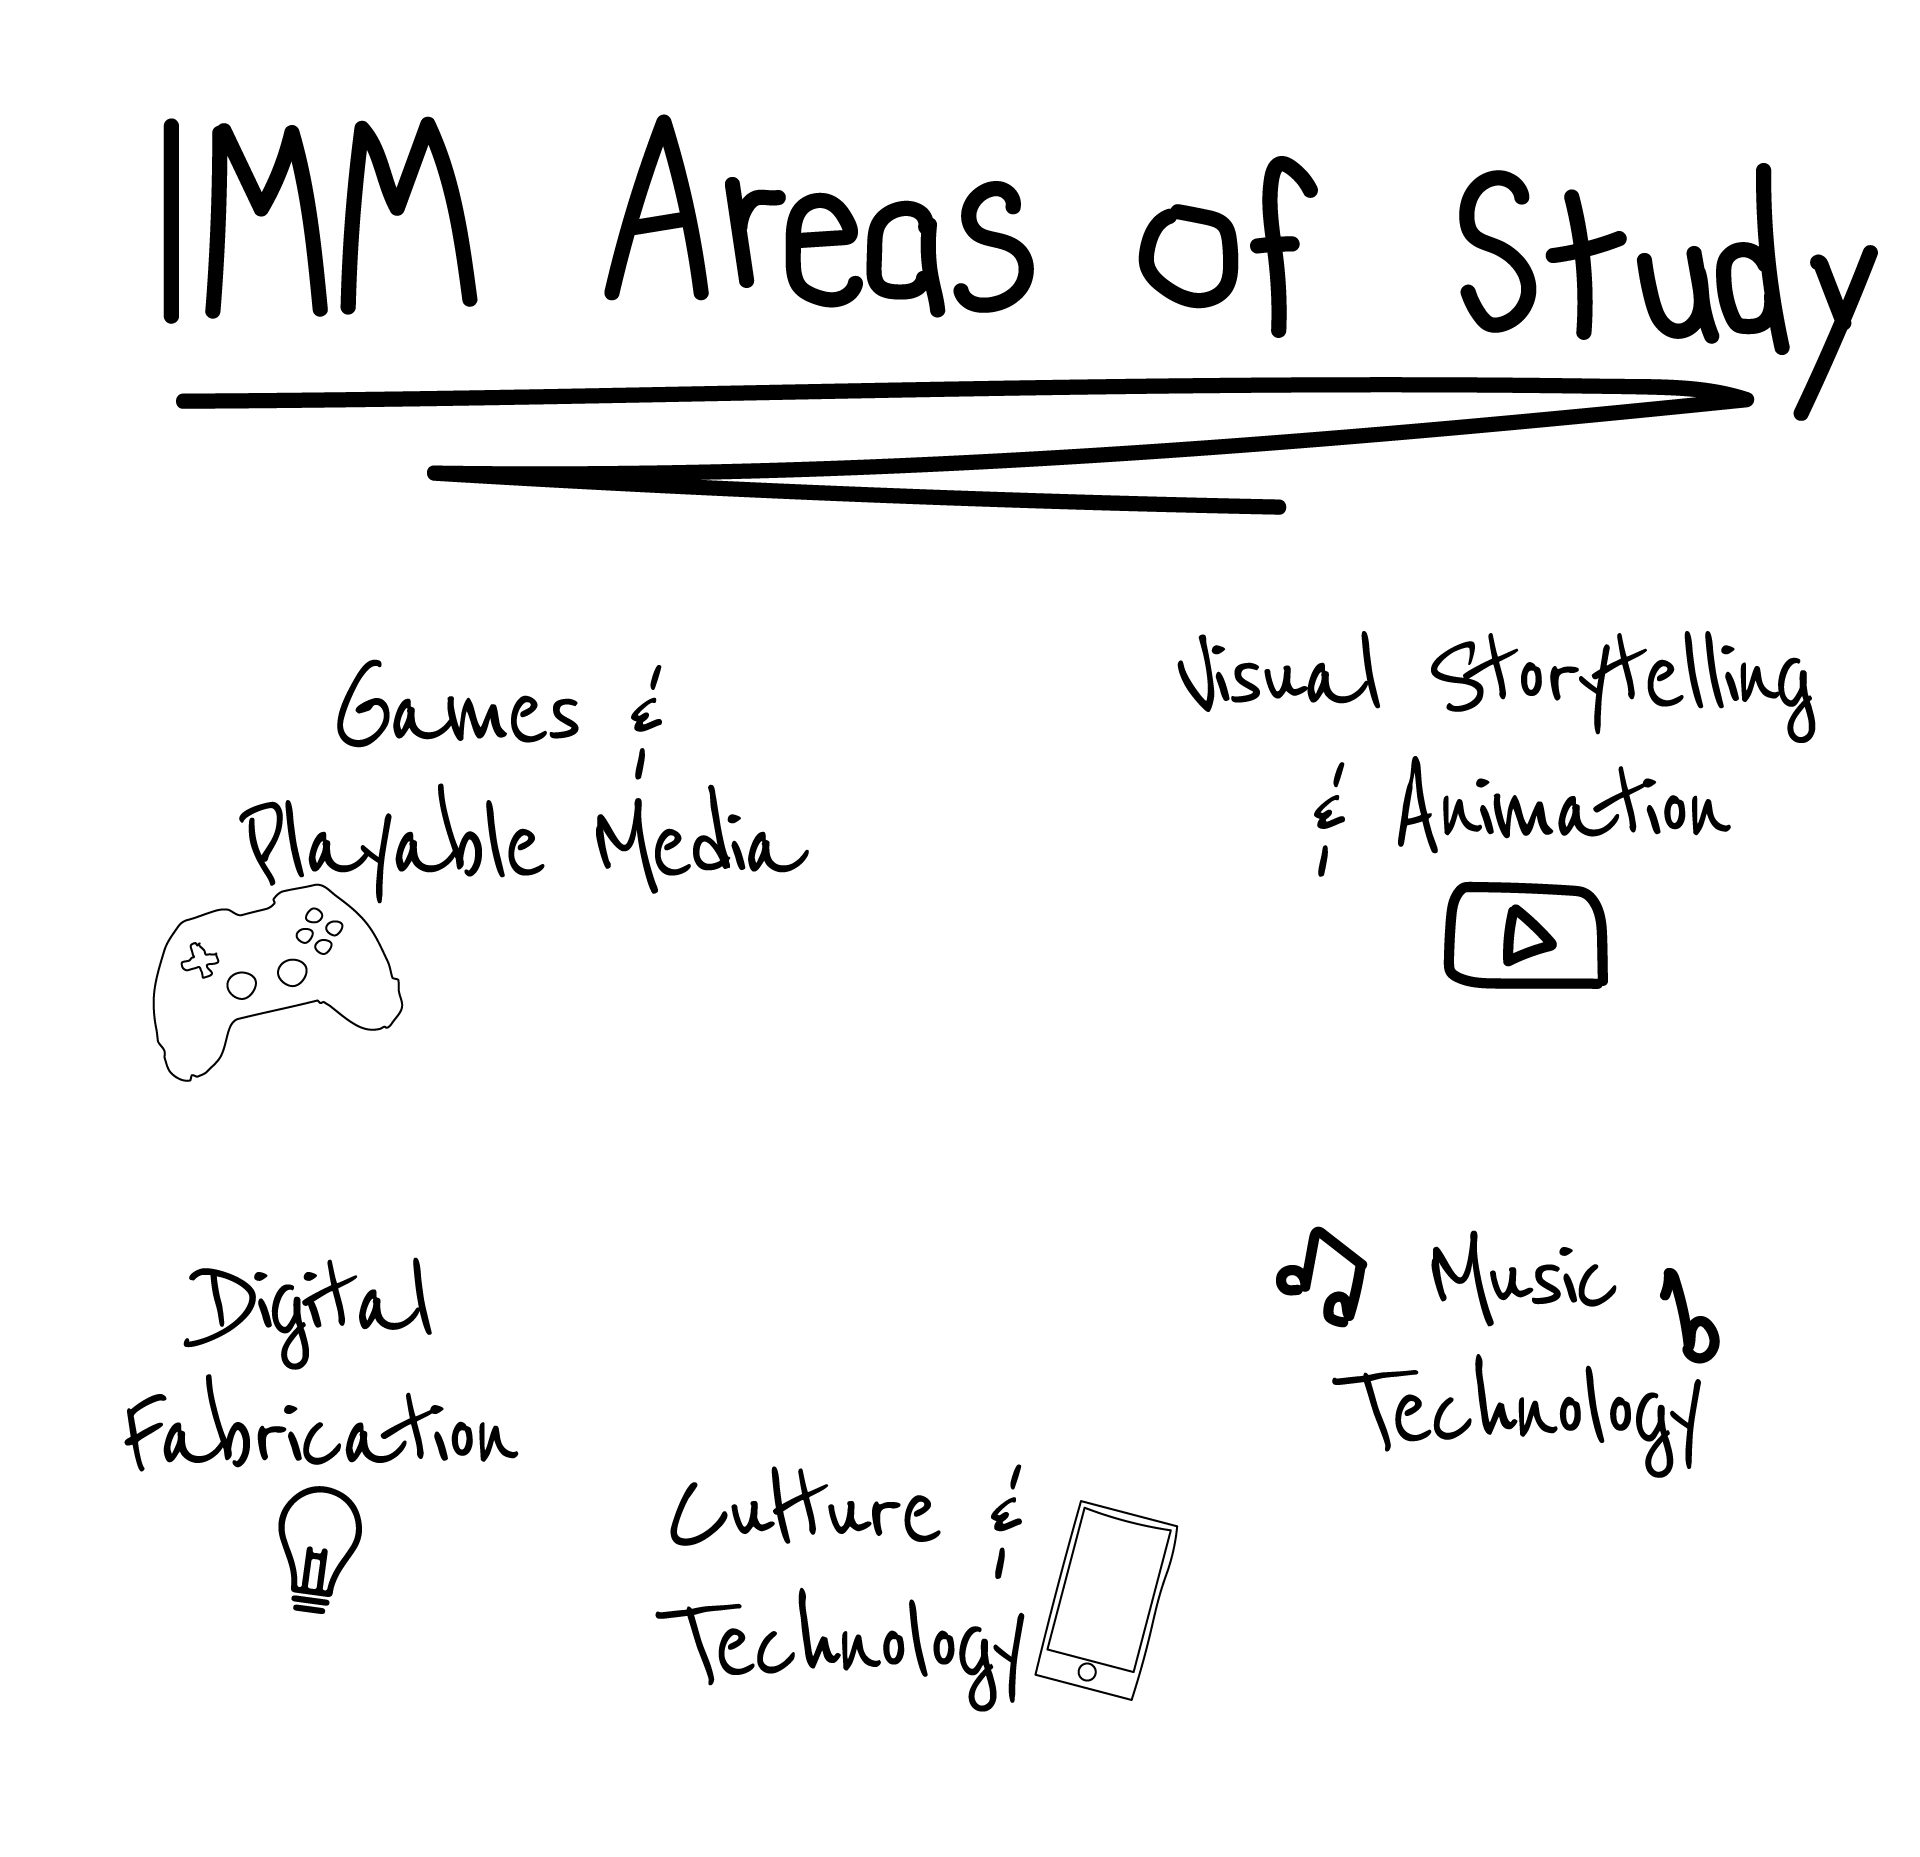 IMM Areas of Study
Games &
Playable Media
Visual Storytelling
& Animation
Digital
Fabrication
Music
Technology
Culture &
Technology